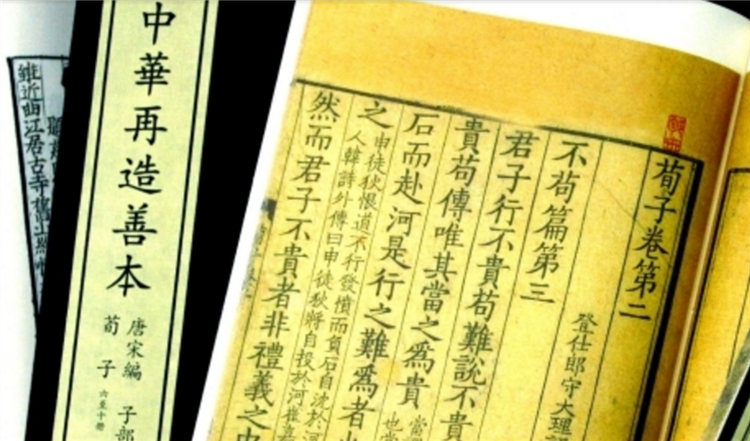 荀子卷第二
登仕郎守大理
不苟篇第三
君子行不貴苟難說不貴
貴苟傳唯其當之爲貴
石而赴河是行之難爲者
之
申徒狄恨道不行發憤而負石自沈於河
人韓詩外傳曰申徒狄將自投於河崔嘉
然而君子不貴者非禮義之中
中華再造善本
唐宋編 子部
荀子
雖近曲江居古寺